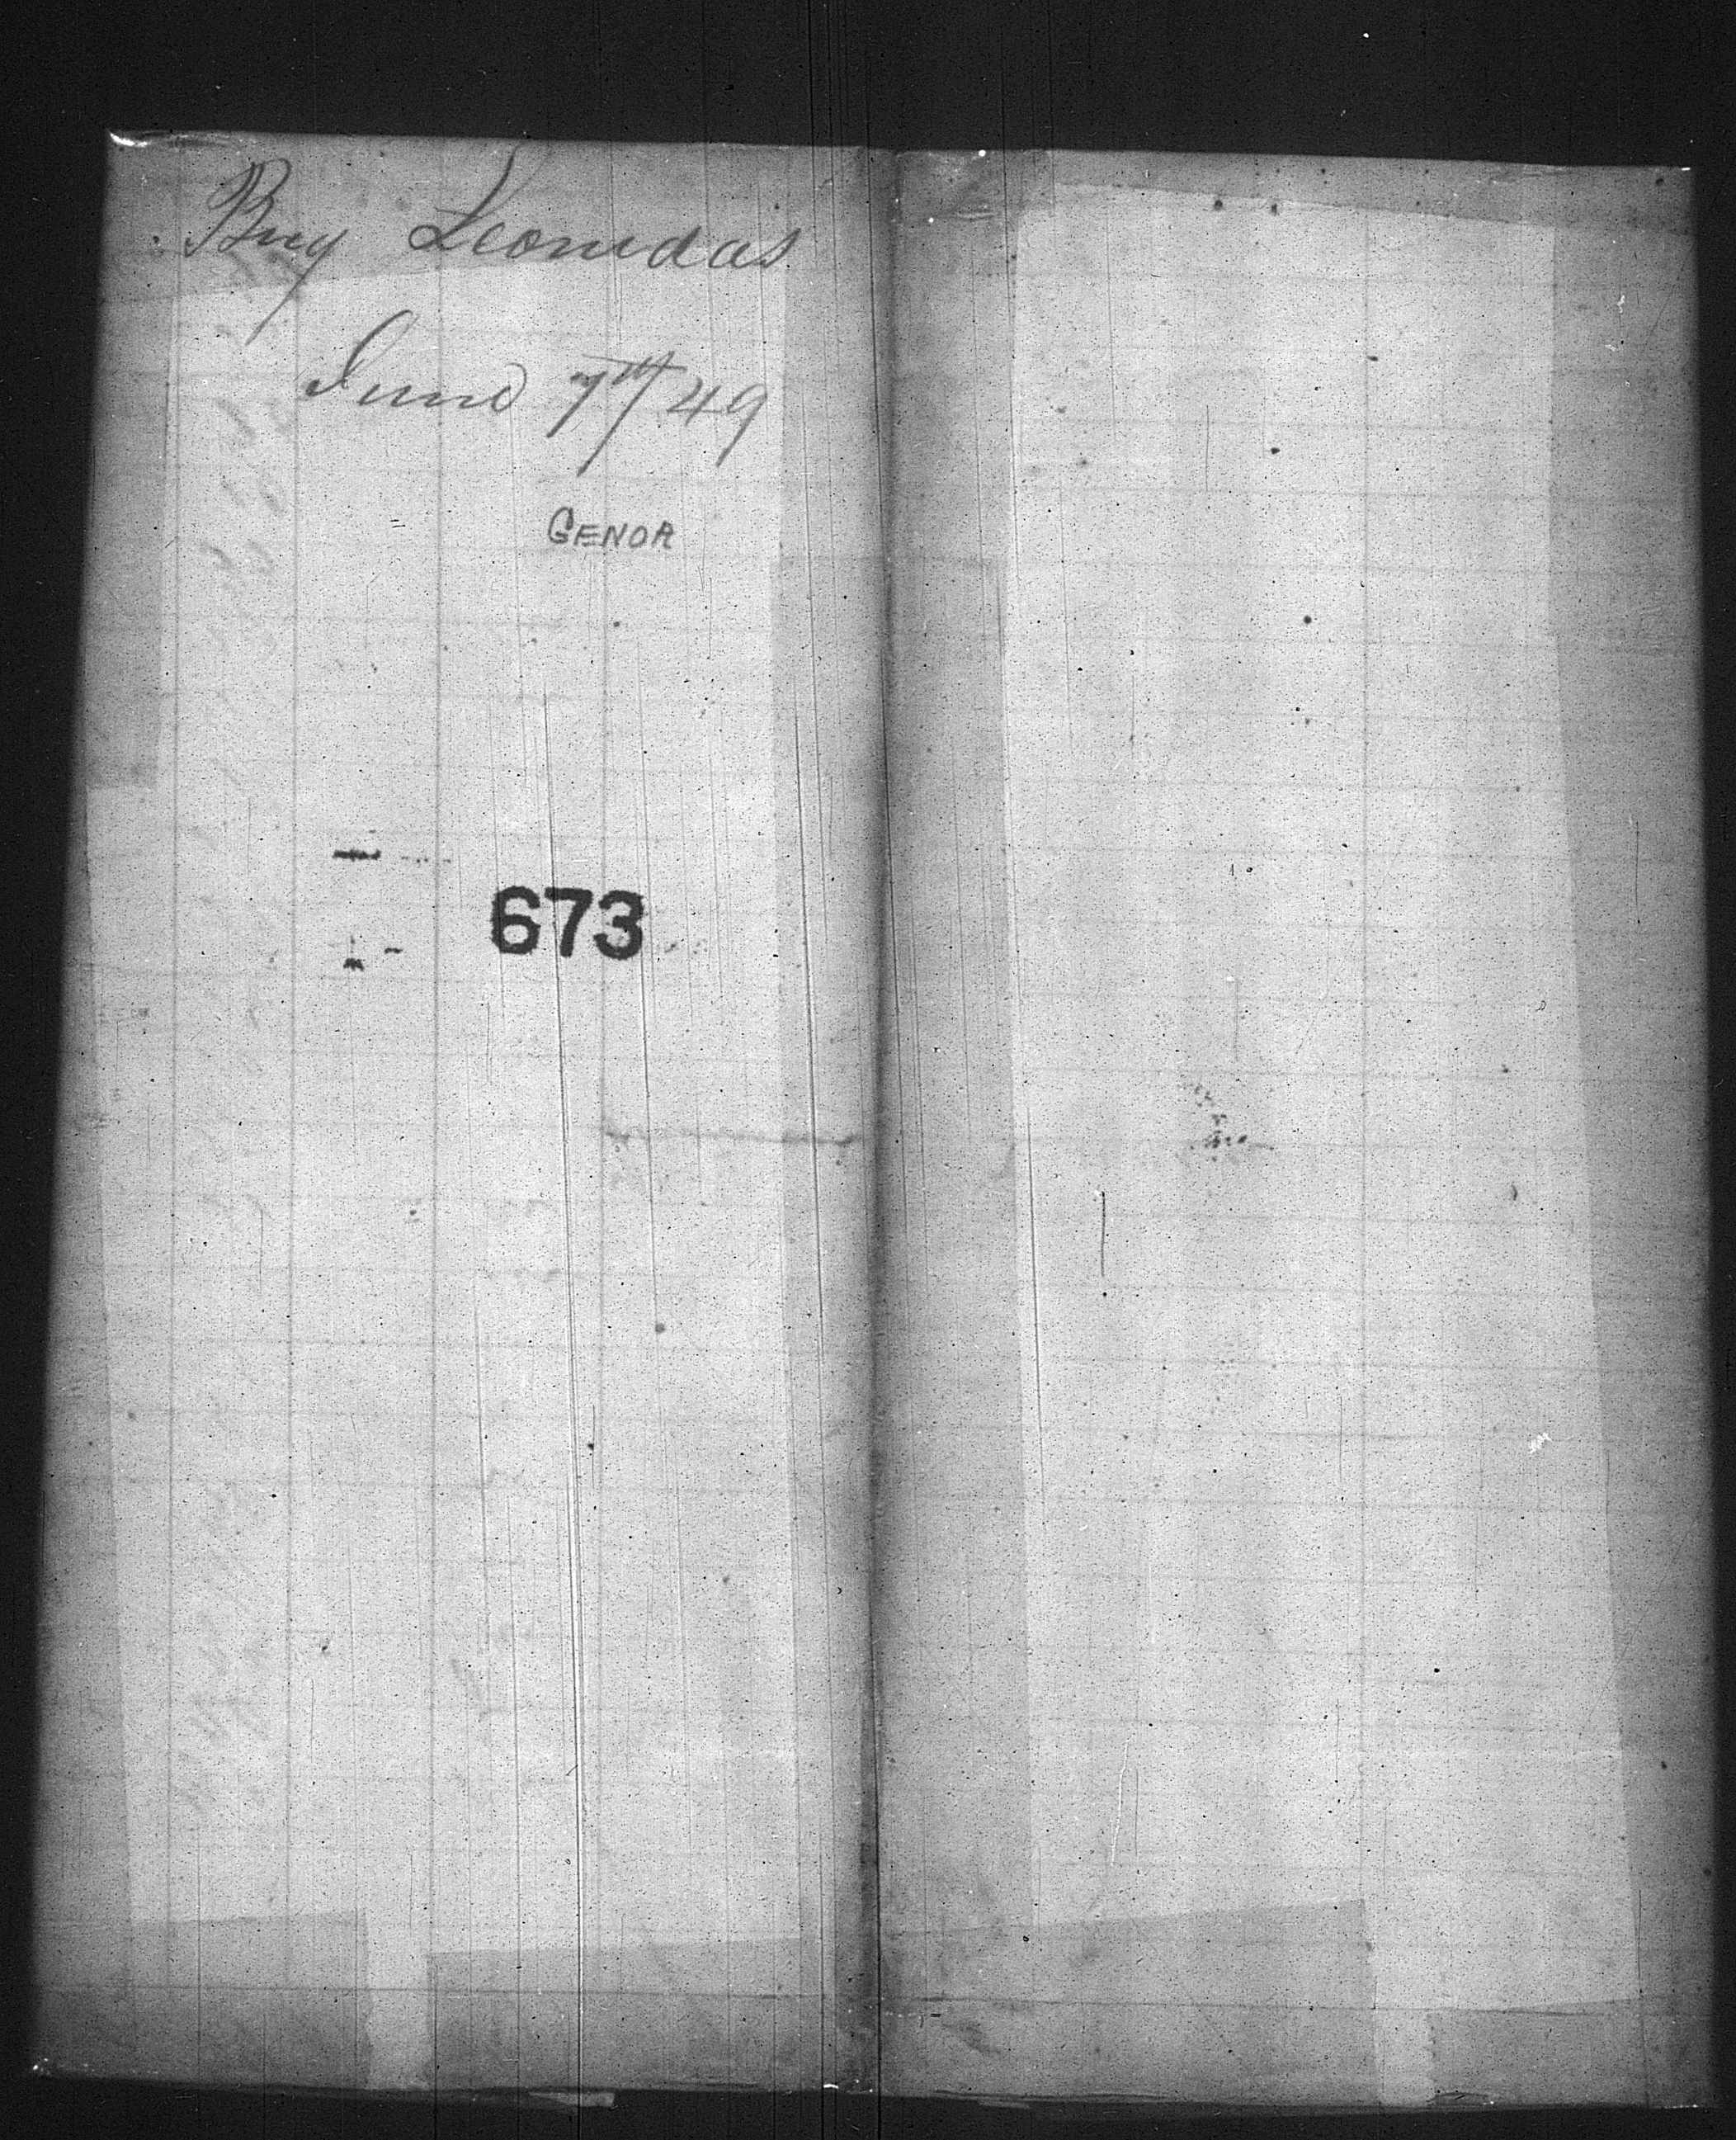 Brig Leonidas
June 7th/49
GENOA
673